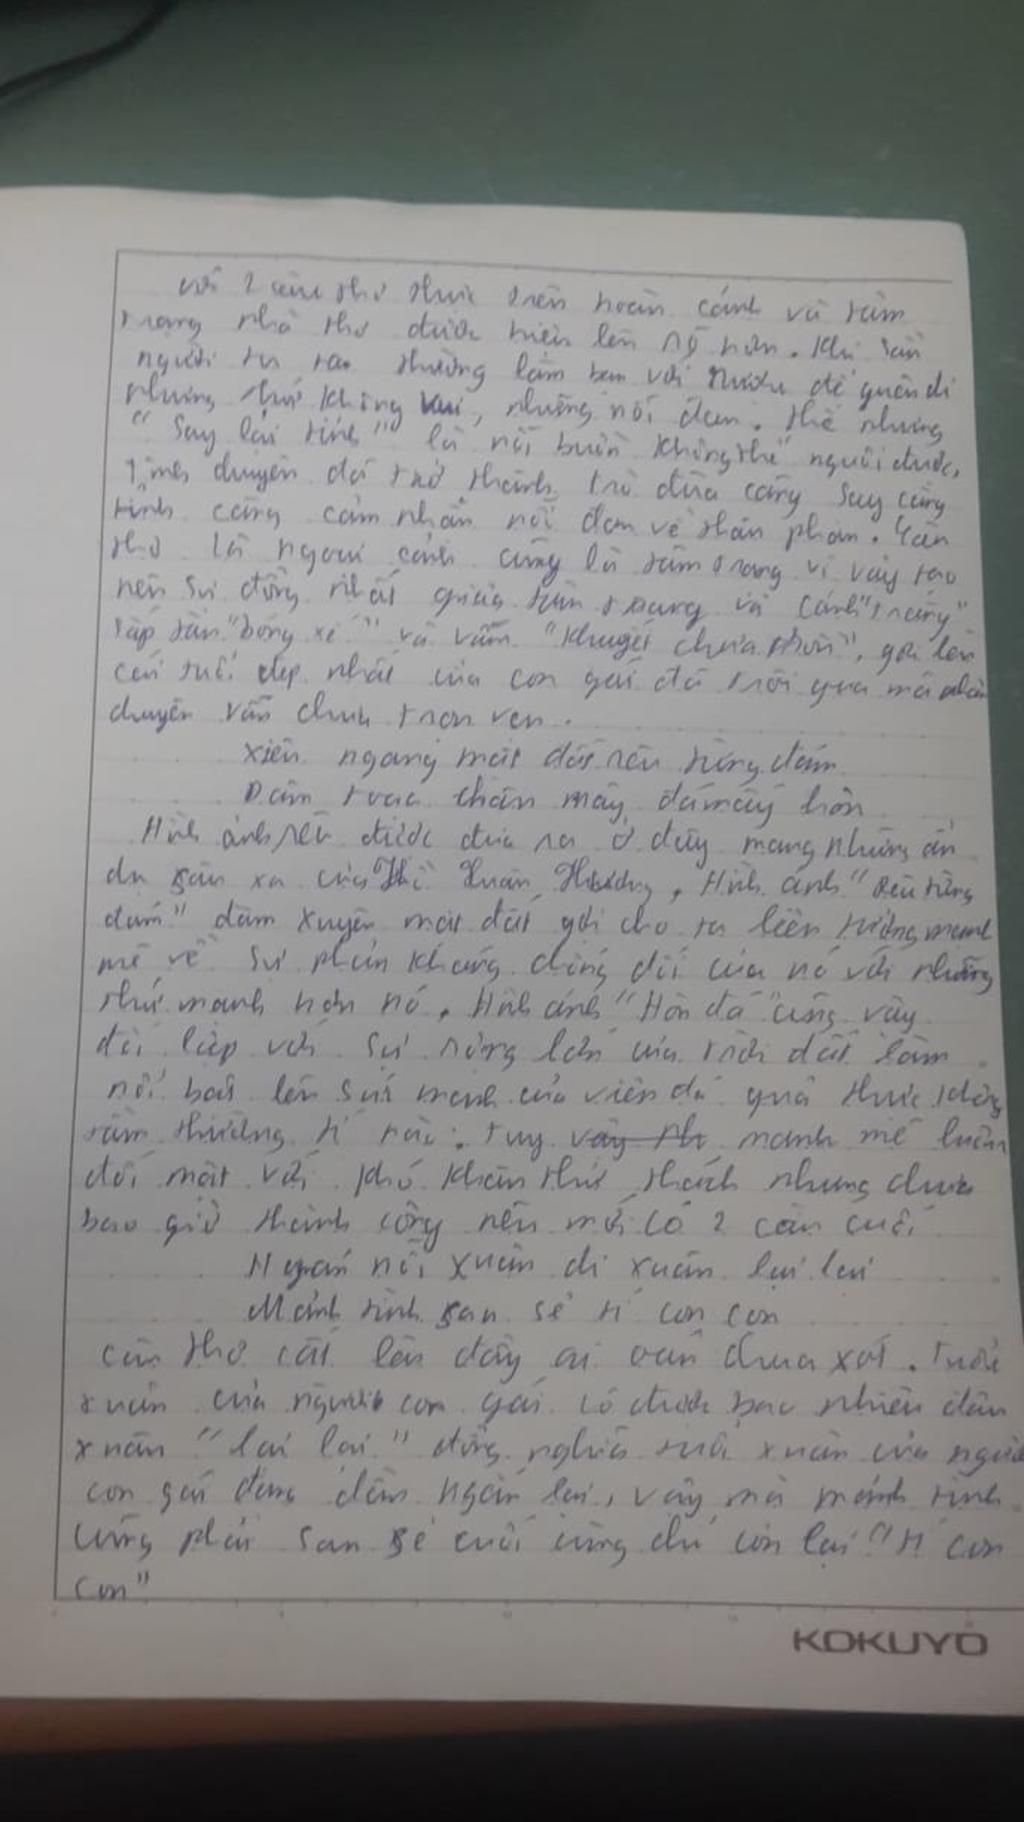 với 2 câu thơ thực trên hoàn cảnh và tâm
trạng nhà thơ được hiện lên rõ hơn. Khi sầu
người ta thường làm bạn với rượu để quên đi
những thứ không vui, những nỗi đau. Thế nhưng
"Say lại tỉnh" là nỗi buồn không thể người được,
Tình duyên đã trở thành trò đùa càng say càng
tỉnh càng cảm nhận nỗi đau về thân phận. Vần
thơ là ngoại cảnh cũng là tâm trạng vì vậy tạo
nên sự đồng nhất giữa tâm trạng và cảnh "trăng"
sắp tàn "bóng xế" và vẫn "khuyết chưa tròn", gợi lên
cái tuổi đẹp nhất của con gái đã trôi qua mà nhân
duyên vẫn chưa trọn vẹn.
Xiên ngang mặt đất rêu từng đám
Đâm toạc chân mây, đá mấy hòn
Hình ảnh rêu được đưa ra ở đây mang những ẩn
dụ sâu xa của Hồ Xuân Hương, Hình ảnh "Rêu từng
đám" đâm xuyên mặt đất gợi cho ta liên tưởng mạnh
mẽ về sự phản kháng của nó với những
thứ mạnh hơn nó. Hình ảnh "Hòn đá" cũng vậy
đối lập với sự rộng lớn của trời đất làm
nổi bật lên sức mạnh của viên đá quả thực không
tầm thường tí nào. Tuy mạnh mẽ luôn
đối mặt với khó khăn thử thách nhưng chưa
bao giờ thành công nên mới có 2 câu cuối
Ngán nỗi xuân đi xuân lại lại
Mảnh tình san sẻ tí con con
Câu thơ cất lên đầy ai oán chua xót. Tuổi
xuân của người con gái có được bao nhiêu đâu
xuân "lại lại" đồng nghĩa tuổi xuân của người
con gái đang dần ngắn lại, vậy mà mảnh tình
cũng phải san sẻ cuối cùng chỉ còn lại "tí con
con"
KOKUYO